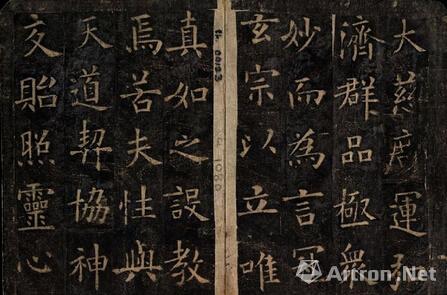 大慈運弘
濟群品極衆
妙而為言冠
玄宗以立唯
真如之設教
焉若夫性與
天道契協神
交貽照靈心
1080
Artron.Net